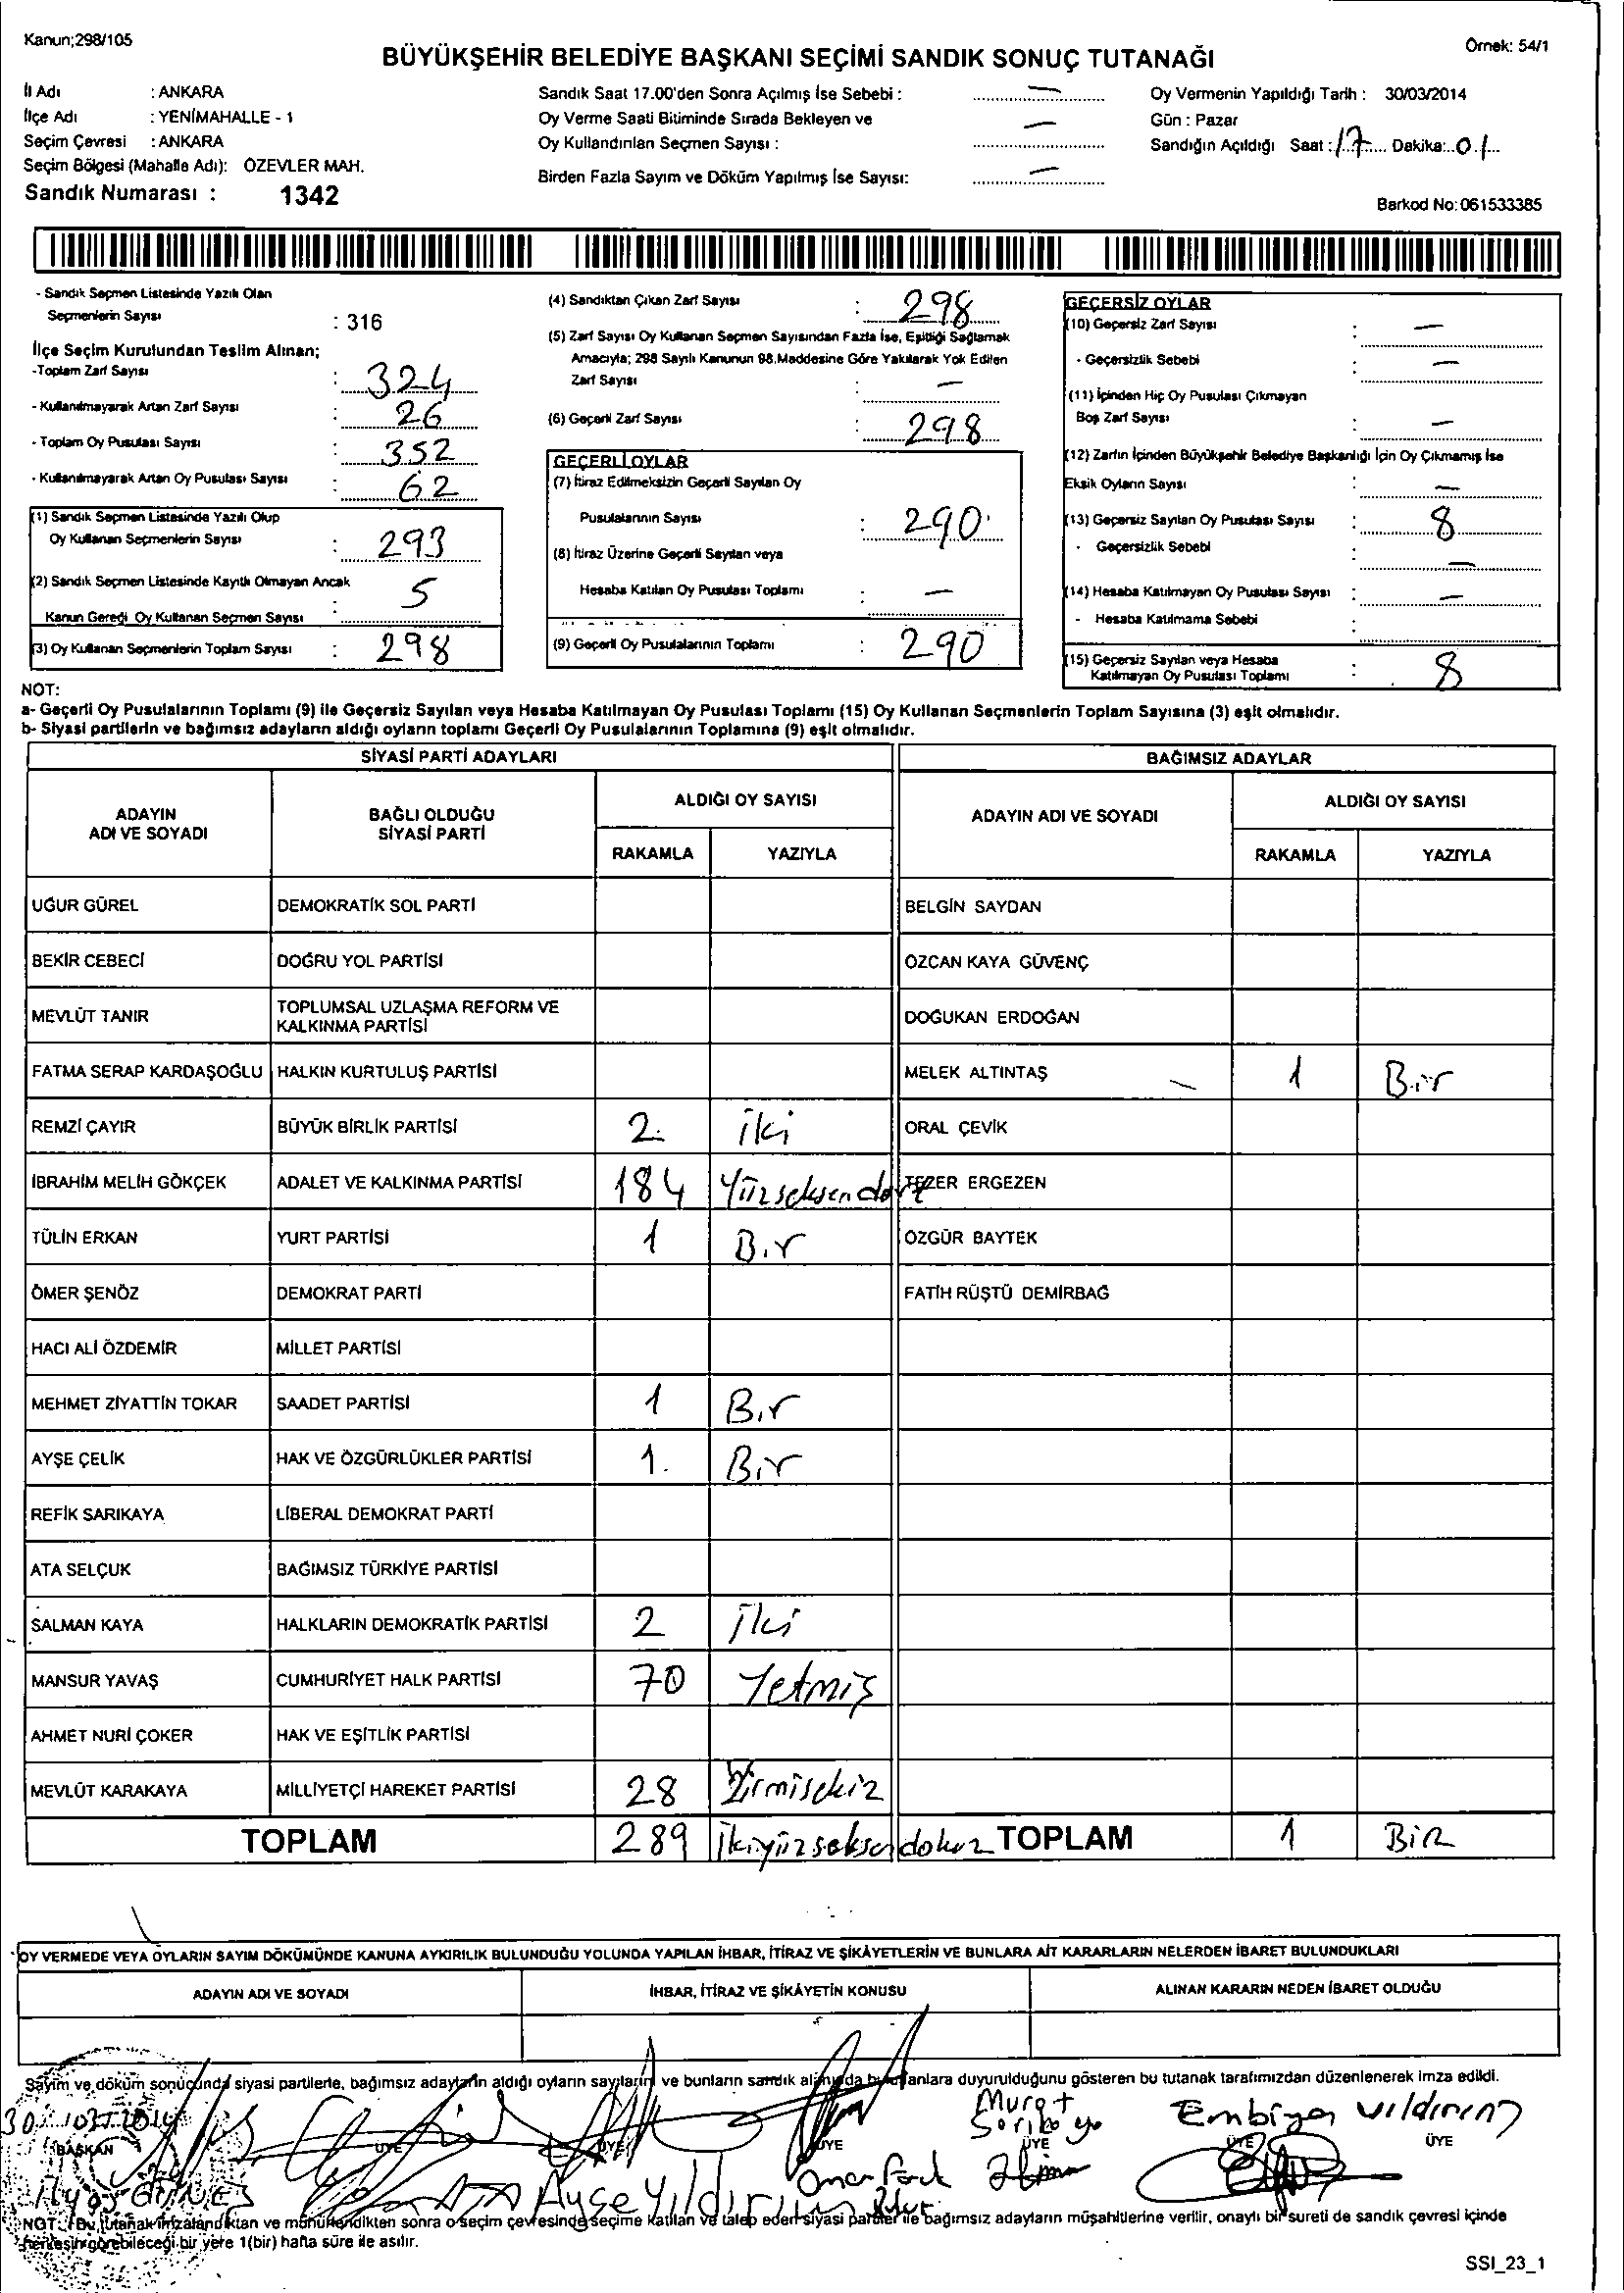 Kanun;298/105
Örnek: 54/1
BÜYÜKŞEHİR BELEDİYE BAŞKANI SEÇİMİ SANDIK SONUÇ TUTANAĞI
İl Adı : ANKARA
İlçe Adı : YENİMAHALLE - 1
Seçim Çevresi : ANKARA
Seçim Bölgesi (Mahalle Adı): ÖZEVLER MAH.
Sandık Numarası : 1342
Sandık Saat 17.00'den Sonra Açılmış İse Sebebi : —
Oy Verme Saati Bitiminde Sırada Bekleyen ve
Oy Kullandırılan Seçmen Sayısı : —
Birden Fazla Sayım ve Döküm Yapılmış İse Sayısı: —
Oy Vermenin Yapıldığı Tarih : 30/03/2014
Gün : Pazar
Sandığın Açıldığı Saat : 17 Dakika: 01
Barkod No:061533385
- Sandık Seçmen Listesinde Yazılı Olan
Seçmenlerin Sayısı : 316
İlçe Seçim Kurulundan Teslim Alınan;
-Toplam Zarf Sayısı : 324
- Kullanılmayarak Artan Zarf Sayısı : 26
- Toplam Oy Pusulası Sayısı : 352
- Kullanılmayarak Artan Oy Pusulası Sayısı : 62
(1) Sandık Seçmen Listesinde Yazılı Olup
Oy Kullanan Seçmenlerin Sayısı : 293
(2) Sandık Seçmen Listesinde Kayıtlı Olmayan Ancak
Kanun Gereği Oy Kullanan Seçmen Sayısı : 5
(3) Oy Kullanan Seçmenlerin Toplam Sayısı : 298
(4) Sandıktan Çıkan Zarf Sayısı : 298
(5) Zarf Sayısı Oy Kullanan Seçmen Sayısından Fazla İse, Eşitliği Sağlamak
Amacıyla; 298 Sayılı Kanunun 98.Maddesine Göre Yakılarak Yok Edilen
Zarf Sayısı : —
(6) Geçerli Zarf Sayısı : 298
GEÇERLİ OYLAR
(7) İtiraz Edilmeksizin Geçerli Sayılan Oy
Pusulalarının Sayısı : 290
(8) İtiraz Üzerine Geçerli Sayılan veya
Hesaba Katılan Oy Pusulası Toplamı : —
(9) Geçerli Oy Pusulalarının Toplamı : 290
GEÇERSİZ OYLAR
(10) Geçersiz Zarf Sayısı : —
- Geçersizlik Sebebi : —
(11) İçinden Hiç Oy Pusulası Çıkmayan
Boş Zarf Sayısı : —
(12) Zarfın İçinden Büyükşehir Belediye Başkanlığı İçin Oy Çıkmamış İse
Eksik Oyların Sayısı : —
(13) Geçersiz Sayılan Oy Pusulası Sayısı : 8
- Geçersizlik Sebebi : —
(14) Hesaba Katılmayan Oy Pusulası Sayısı : —
- Hesaba Katılmama Sebebi :
(15) Geçersiz Sayılan veya Hesaba
Katılmayan Oy Pusulası Toplamı : 8
NOT:
a- Geçerli Oy Pusulalarının Toplamı (9) ile Geçersiz Sayılan veya Hesaba Katılmayan Oy Pusulası Toplamı (15) Oy Kullanan Seçmenlerin Toplam Sayısına (3) eşit olmalıdır.
b- Siyasi partilerin ve bağımsız adayların aldığı oyların toplamı Geçerli Oy Pusulalarının Toplamına (9) eşit olmalıdır.
SİYASİ PARTİ ADAYLARI BAĞIMSIZ ADAYLAR
ADAYIN ADI VE SOYADI BAĞLI OLDUĞU SİYASİ PARTİ ALDIĞI OY SAYISI ADAYIN ADI VE SOYADI ALDIĞI OY SAYISI
RAKAMLA YAZIYLA RAKAMLA YAZIYLA
UĞUR GÜREL DEMOKRATİK SOL PARTİ BELGİN SAYDAN
BEKİR CEBECİ DOĞRU YOL PARTİSİ ÖZCAN KAYA GÜVENÇ
MEVLÜT TANIR TOPLUMSAL UZLAŞMA REFORM VE KALKINMA PARTİSİ DOĞUKAN ERDOĞAN
FATMA SERAP KARDAŞOĞLU HALKIN KURTULUŞ PARTİSİ MELEK ALTINTAŞ 1 Bir
REMZİ ÇAYIR BÜYÜK BİRLİK PARTİSİ 2 iki ORAL ÇEVİK
İBRAHİM MELİH GÖKÇEK ADALET VE KALKINMA PARTİSİ 184 Yüzseksendört TEZER ERGEZEN
TÜLİN ERKAN YURT PARTİSİ 1 Bir ÖZGÜR BAYTEK
ÖMER ŞENÖZ DEMOKRAT PARTİ FATİH RÜŞTÜ DEMİRBAĞ
HACI ALİ ÖZDEMİR MİLLET PARTİSİ
MEHMET ZİYATTİN TOKAR SAADET PARTİSİ 1 Bir
AYŞE ÇELİK HAK VE ÖZGÜRLÜKLER PARTİSİ 1 Bir
REFİK SARIKAYA LİBERAL DEMOKRAT PARTİ
ATA SELÇUK BAĞIMSIZ TÜRKİYE PARTİSİ
SALMAN KAYA HALKLARIN DEMOKRATİK PARTİSİ 2 İki
MANSUR YAVAŞ CUMHURİYET HALK PARTİSİ 70 Yetmiş
AHMET NURİ ÇOKER HAK VE EŞİTLİK PARTİSİ
MEVLÜT KARAKAYA MİLLİYETÇİ HAREKET PARTİSİ 28 Yirmisekiz
TOPLAM 289 İkiyüzseksendokuz TOPLAM 1 BİR
OY VERMEDE VEYA OYLARIN SAYIM DÖKÜMÜNDE KANUNA AYKIRILIK BULUNDUĞU YOLUNDA YAPILAN İHBAR, İTİRAZ VE ŞİKÂYETLERİN VE BUNLARA AİT KARARLARIN NELERDEN İBARET BULUNDUKLARI
ADAYIN ADI VE SOYADI İHBAR, İTİRAZ VE ŞİKÂYETİN KONUSU ALINAN KARARIN NEDEN İBARET OLDUĞU
Sayım ve döküm sonucunda siyasi partilerle, bağımsız adayların aldığı oyların sayılarını ve bunların sandık alanında bulunanlara duyurulduğunu gösteren bu tutanak tarafımızdan düzenlenerek imza edildi.
30/03/2014 Murat Embiya Yıldırım
BAŞKAN ÜYE ÜYE ÜYE ÜYE ÜYE ÜYE
İlyas GÜNEŞ Ayşe Yıldırım Ömer
NOT: Bu tutanak imzalandıktan ve mühürlendikten sonra o seçim çevresinde seçime katılan ve talep eden siyasi partiler ile bağımsız adayların müşahitlerine verilir, onaylı bir sureti de sandık çevresi içinde
herkesin görebileceği bir yere 1(bir) hafta süre ile asılır.
SSI_23_1